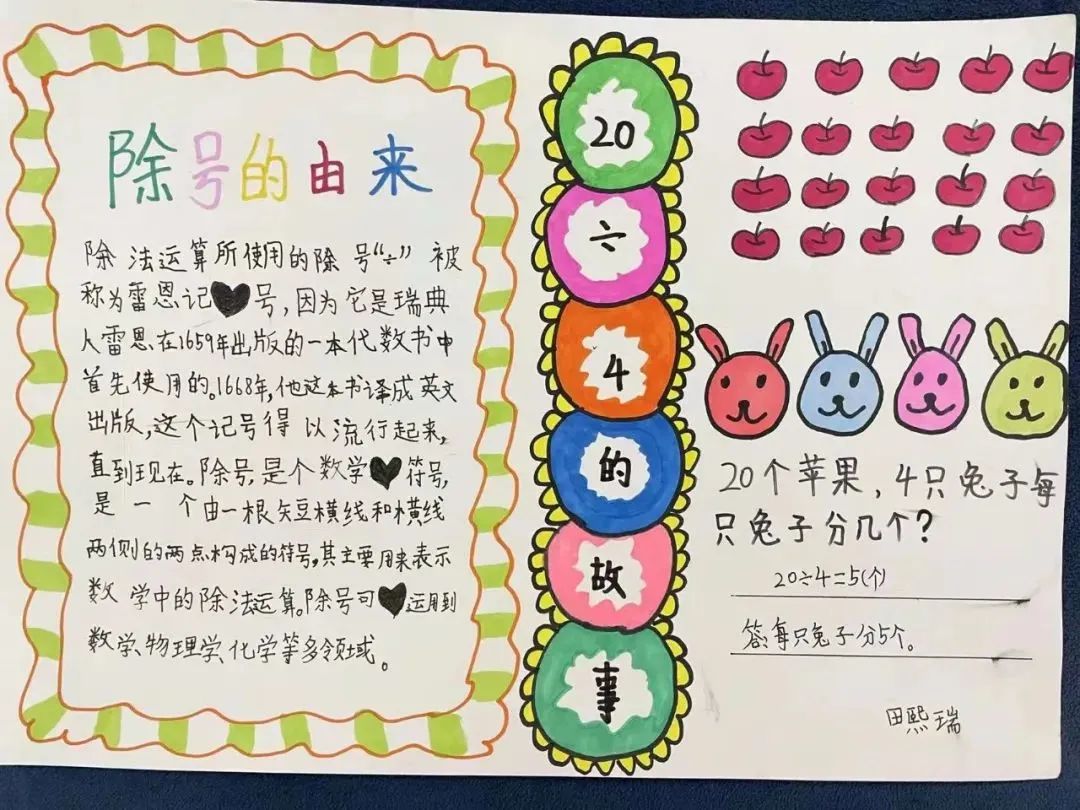 除号的由来
除法运算所使用的除号“÷”被
称为雷恩记号，因为它是瑞典
人雷恩在1659年出版的一本代数书中
首先使用的。1668年，他这本书译成英文
出版，这个记号得以流行起来，
直到现在。除号，是个数学符号，
是一个由一根短横线和横线
两侧的两点构成的符号，其主要用来表示
数学中的除法运算。除号可运用到
数学、物理学、化学等多领域。
20
÷
4
的
故
事
20个苹果，4只兔子每
只兔子分几个？
20÷4=5(个)
答：每只兔子分5个。
田熙瑞